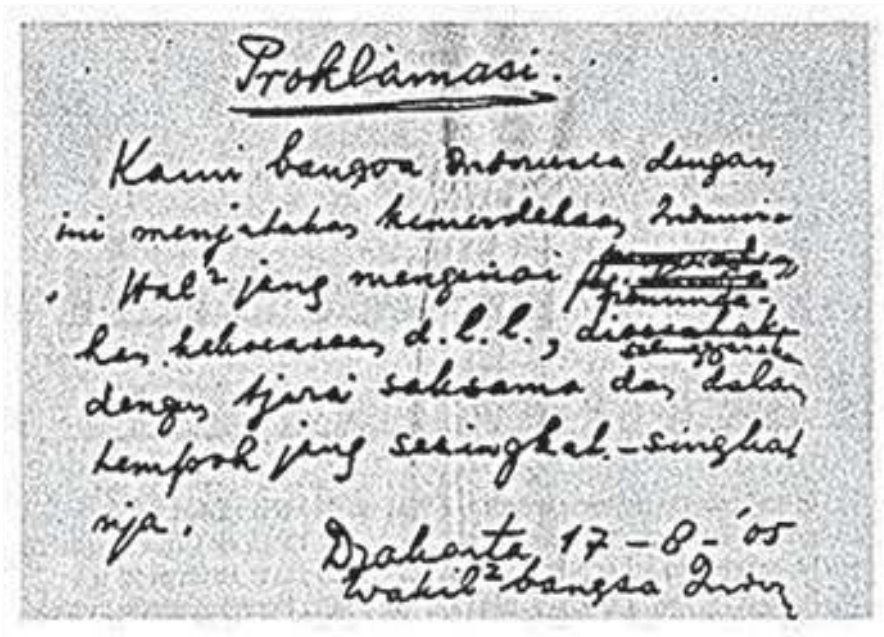 Proklamasi.
Kami bangsa Indonesia dengan
ini menjatakan kemerdekaan Indonesia
. Hal² jang mengenai
peminda-
han kekoeasaan d.l.l.,
diselenggarakan
dengan tjara saksama dan dalam
tempoh jang sesingkat-singkat
nja.
Djakarta 17-8-'05
Wakil² bangsa Indon